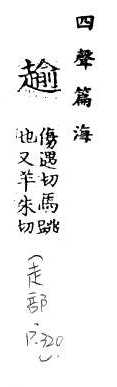 四聲篇海
𧼯
傷遇切馬跳
也又羊朱切
(走部 P.320)